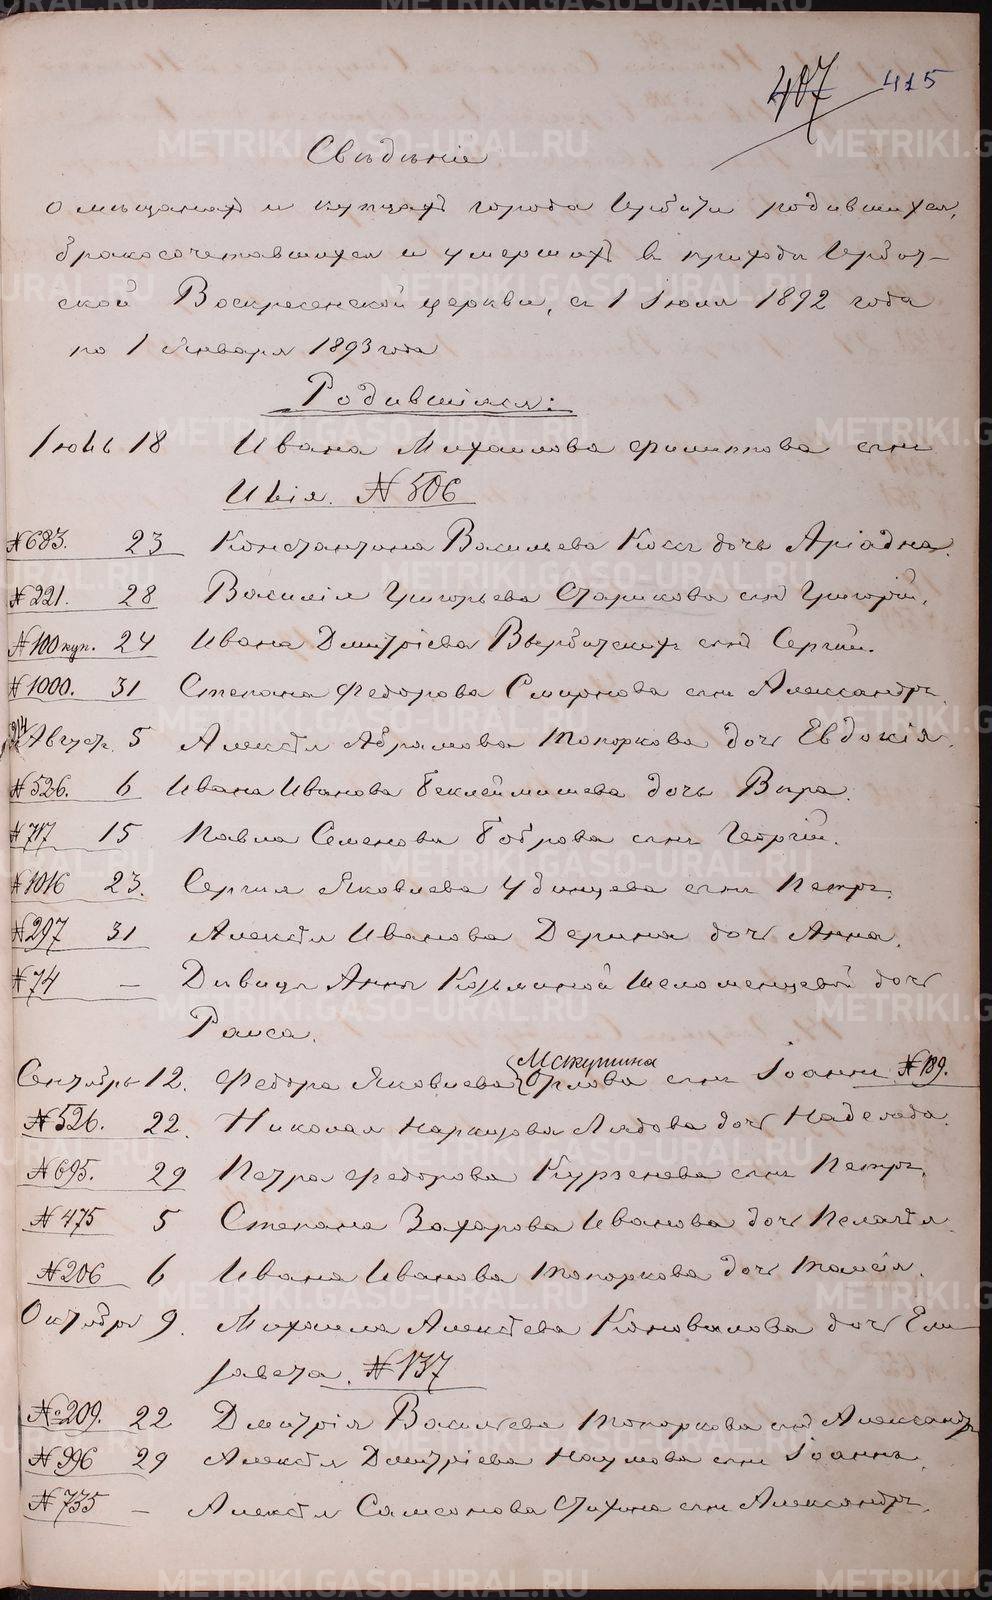 407 415
Свѣдѣніе
о мѣщанахъ и купцахъ города Ирбити родившихся,
бракосочетавшихся и умершихъ въ приходѣ Ирбит-
ской Воскресенской церкви, съ 1 Іюля 1892 года
по 1 Января 1893 года
Родившіеся:
Іюль 18 Ивана Михаилова Филиппова сынъ
Илія. № 506
№ 683. 23 Константина Васильева Коссъ дочь Аріадна.
№ 221. 28 Василія Григорьева Старикова сынъ Григорій.
№ 100 куп. 24 Ивана Дмитріева Вырбитскихъ сынъ Сергій.
№ 1000. 31 Степана Федорова Смирнова сынъ Александръ.
Августъ 5 Алексѣя Абрамова Топоркова дочь Евдокія.
№ 526. 6 Ивана Иванова Беклеймишева дочь Вѣра.
№ 717 15 Павла Семенова Боброва сынъ Георгій.
№ 1016 23. Сергия Яковлева Удинцева сынъ Петръ.
№ 297 31 Алексѣя Иванова Дерина дочь Анна.
№ 74 — Дѣвицы Анны Козьминой Шеломенцевой дочь
Раиса.
Мякутина
Сентябрь 12. Федора Яковлева Орлова сынъ Іоаннъ № 189.
№ 526. 22. Николая Наркизова Лядова дочь Надежда.
№ 695. 29 Петра Федорова Курзенева сынъ Петръ.
№ 475 5 Степана Захарова Иванова дочь Пелагѣя.
№ 206 6 Ивана Иванова Топоркова дочь Таисія.
Октябрь 9. Михаила Алексѣева Коновалова дочь Ели-
завета. № 137
№ 209. 22 Дмитрія Васильева Топоркова сынъ Александръ
№ 996 29 Алексѣя Дмитріева Наумова сынъ Іоаннъ.
№ 735 — Алексѣя Самсонова Стихина сынъ Александръ.
METRIKI.GASO-URAL.RU